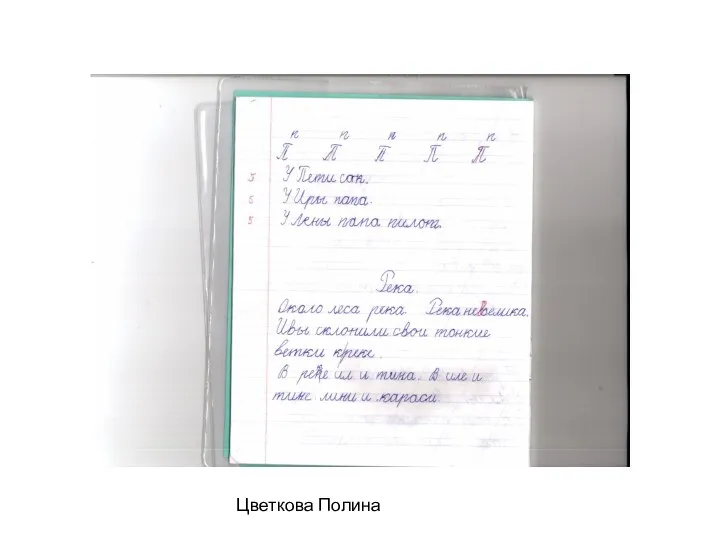 п п п п п
П П П П П
5 У Пети сок.
5 У Иры папа.
5 У Лены папа пилот.
Река.
Около леса река. Река невелика.
Ивы склонили свои тонкие
ветки к реке.
В реке ил и тина. В иле и
тине лини и караси.
Цветкова Полина